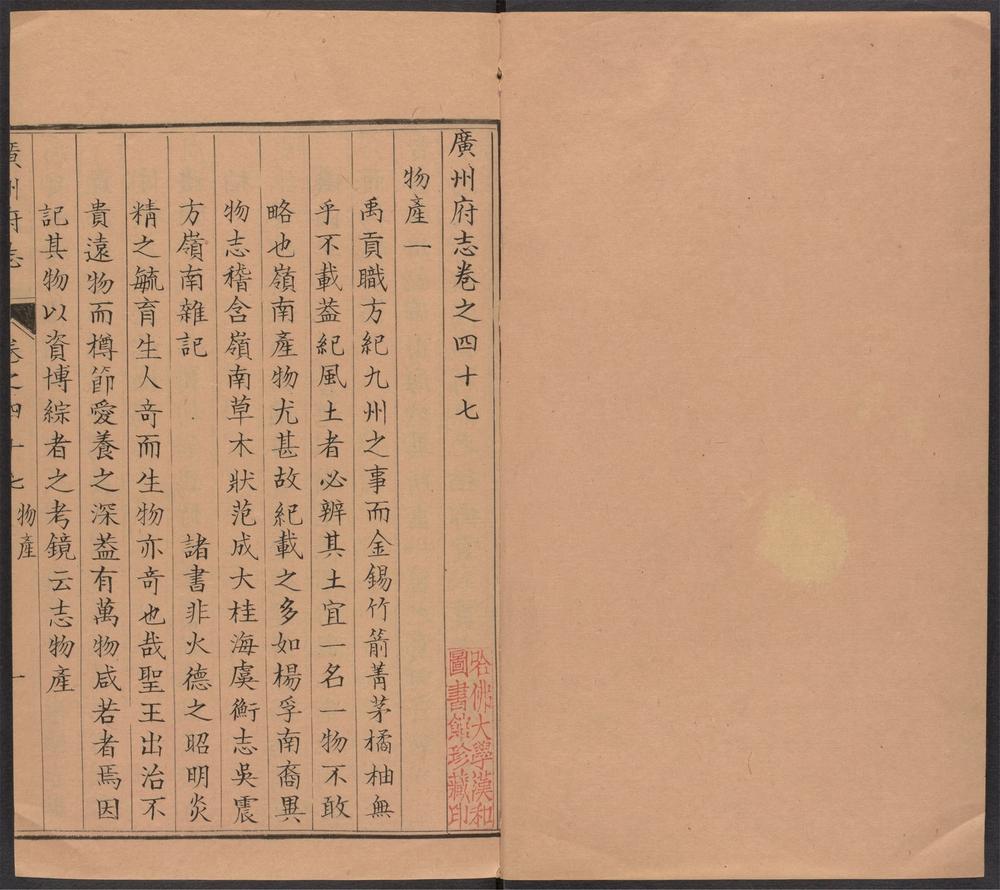 廣州府志卷之四十七
物產一
禹貢職方紀九州之事而金錫竹箭菁茅橘柚無
乎不載葢紀風土者必辨其土宜一名一物不敢
略也嶺南產物尤甚故紀載之多如楊孚南裔異
物志稽含嶺南草木狀范成大桂海虞衡志吳震
方嶺南雜記 諸書非火德之昭明炎
精之毓育生人竒而生物亦竒也哉聖王出治不
貴遠物而樽節愛養之深葢有萬物咸若者焉因
記其物以資博綜者之考鏡云志物產
廣州府志 卷之四十七 物產 一
哈佛大學漢和
圖書館珍藏印